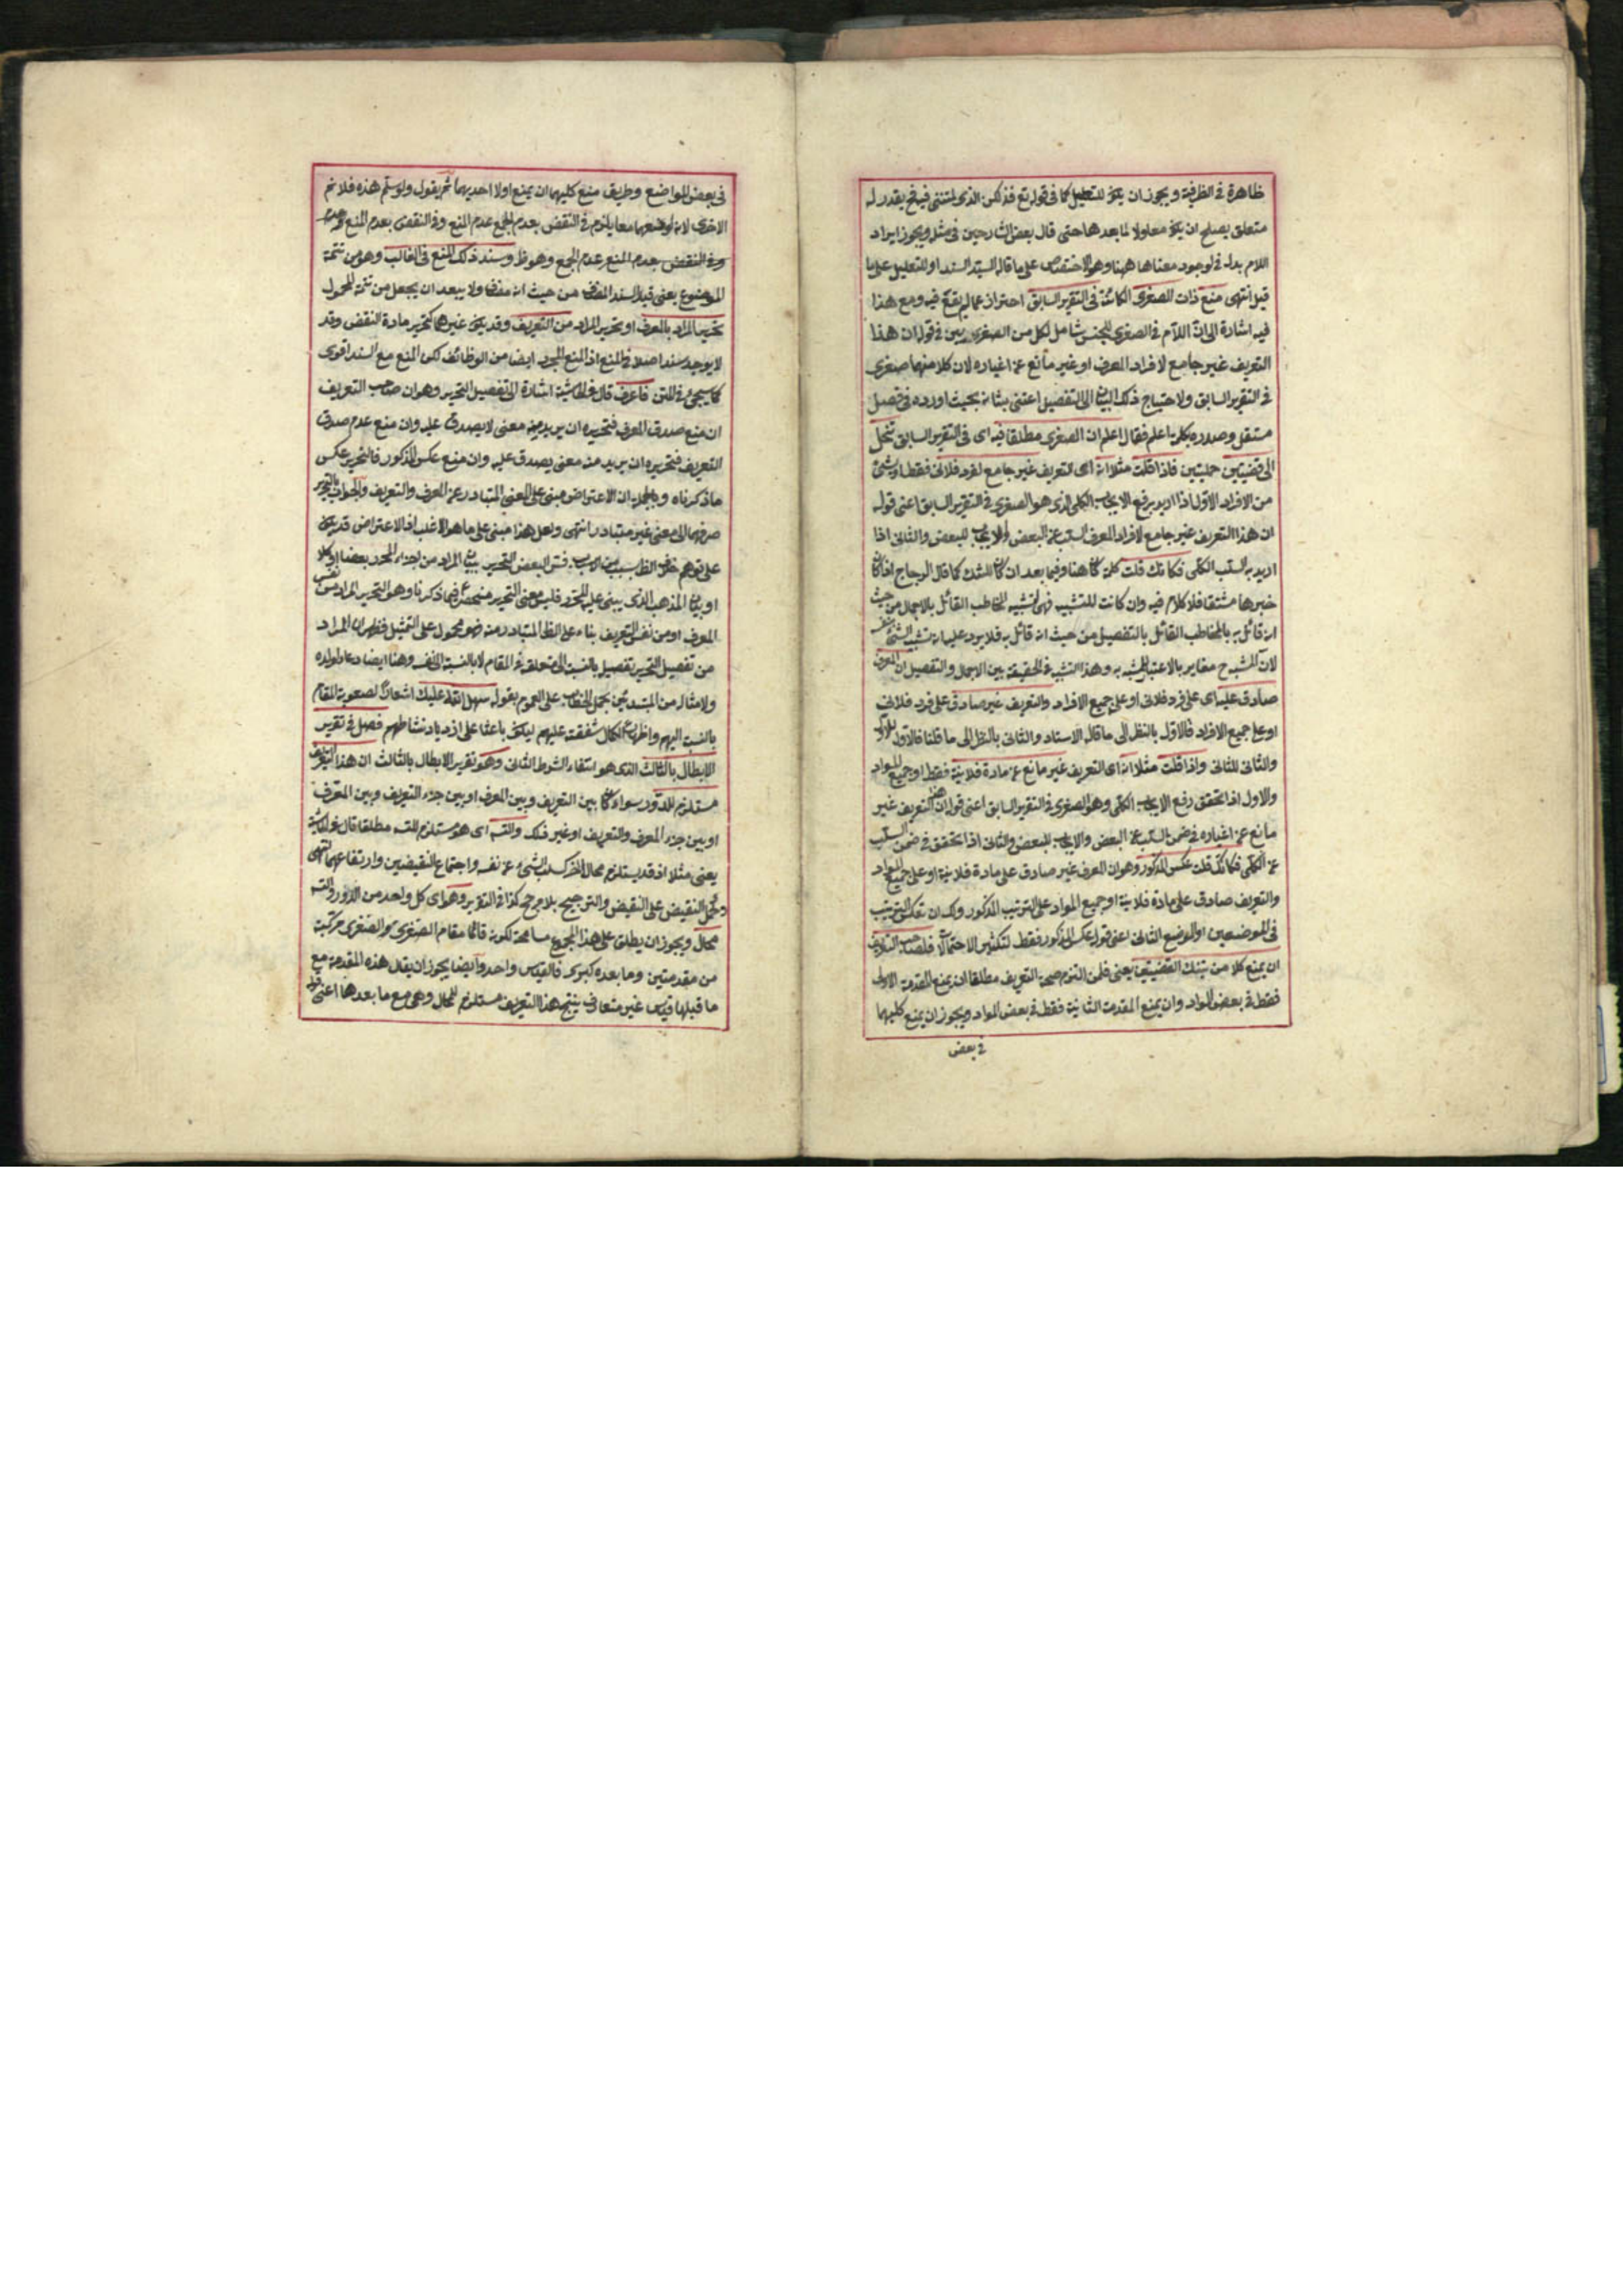 ظاهرة فى الظرفية ويجوز ان يكون للتعليل كما فى قوله تع فذلكن الذى لمتننى فيه فح يقدر له
متعلق يصلح ان يكون معلولا لما بعدها حتى قال بعض الشارحين فى مثله ويجوز ايراد
اللام بدل فى لوجود معناها ههنا وهو الاختصاص على ما قاله السيد السند او للتعليل على ما
قيل انتهى منع ذات الصغرى الكائنة فى التقرير السابق احتراز عما لم يقع فيه ومع هذا
فيه اشارة الى ان اللام فى الصغرى للجنس شامل لكل من الصغريين فى قوله ان هذا
التعريف غير جامع لافراد المعرف او غير مانع عن اغياره لان كلا منهما صغرى
فى التقرير السابق ولاحتياج ذلك البيان الى التفصيل اعتنى بشانه بحيث اورده فى فصل
مستقل وصدره بكلمة اعلم فقال اعلم ان الصغرى مطلقا فيه اى فى التقرير السابق تنحل
الى قضيتين حمليتين فاذا قلت مثلا انه اى التعريف غير جامع لفرد فلانى فقط او شئ
من الافراد الاول اذا اريد برفع الايجاب الكلى الذى هو الصغرى فى التقرير السابق اعنى قوله
ان هذا التعريف غير جامع لافراد المعرف السلب عن البعض والايجاب للبعض والثانى اذا
اريد به السلب الكلى فكانك قلت كلمة كان هنا وفيما بعد ان كان للشك كما قال الزجاج اذا كان
خبرها مشتقا فلا كلام فيه وان كانت للتشبيه فهى لتشبيه المخاطب القائل بالاجمال من حيث
انه قائل به بالمخاطب القائل بالتفصيل من حيث انه قائل به فلا يرد عليه انه تشبيه الشئ بنفسه
لان المشبه ح مغاير بالاعتبار للمشبه به وهذا التشبيه فى الحقيقة بين الاجمال والتفصيل ان المعرف
صادق عليه اى على فرد فلانى او على جميع الافراد والتعريف غير صادق على فرد فلانى
او على جميع الافراد فالاول بالنظر الى ما قاله الاستاد والثانى بالنظر الى ما قلنا فالاول للاول
والثانى للثانى واذا قلت مثلا انه اى التعريف غير مانع عن مادة فلانية فقط او جميع المواد
والاول اذا تحقق رفع الايجاب الكلى وهو الصغرى فى التقرير السابق اعنى قوله ان هذا التعريف غير
مانع عن اغياره فى ضمن السلب عن البعض والايجاب للبعض والثانى اذا تحقق فى ضمن السلب
عن الكلى فكانك قلت عكس المذكور وهو ان المعرف غير صادق على مادة فلانية او على جميع المواد
والتعريف صادق على مادة فلانية او جميع المواد على الترتيب المذكور ولك ان تعكس الترتيب
فى الموضعين او الموضع الثانى اعنى قوله عكس المذكور فقط لتكثير الاحتمالات فلصاحب التعريف
ان يمنع كلا من تينك القضيتين يعنى فلمن التزم صحة التعريف مطلقا ان يمنع المقدمة الاولى
فقط فى بعض المواد وان يمنع المقدمة الثانية فقط فى بعض المواد ويجوز ان يمنع كليهما
فى بعض
فى بعض المواضع وطريق منع كليهما ان يمنع اولا احديهما ثم يقول ولو سلم هذه فلا نم
الاخرى لانه لو منعهما معا يلزم فى النقض بعدم الجمع عدم المنع وفى النقض بعدم المنع عدم
وفى النقض بعدم المنع عدم الجمع وهو ظ وسند ذلك المنع فى الغالب وهو من تتمة
الموضوع يعنى قيد السند المضاف من حيث انه مضاف ولا يبعد ان يجعل من تتمة المحمول
تحرير المراد بالمعرف او تحرير المراد من التعريف وقد يكون غيرهما كتحرير مادة النقض وقد
لا يوجد سند اصلا فى المنع اذ المنع المجرد ايضا من الوظائف لكن المنع مع السند اقوى
كما سيجئ فى المتن فاعرف قال فى الحاشية اشارة الى تفصيل التحرير وهو ان صاحب التعريف
ان منع صدق المعرف فتحريره ان يريد منه معنى لا يصدق عليه وان منع عدم صدق
التعريف فتحريره ان يريد منه معنى يصدق عليه وان منع عكس المذكور فالتحرير عكس
ما ذكرناه وبالجملة ان الاعتراض مبنى على المعنى المتبادر عن المعرف والتعريف والجواب بالتحرير
صرفهما الى معنى غير متبادر انتهى ولعل هذا مبنى على ما هو الاغلب اذ الاعتراض قد يكون
على توهم خلاف الظ بسبب من الاسباب فسر البعض التحرير ببيان المراد من اجزاء المحرر بعضا او كلا
او بيان المذهب الذى يبنى عليه المحرر فليس معنى التحرير منحصرا فيما ذكرنا وهو التحرير المراد من نفس
المعرف او من نفس التعريف بناء على الظ المتبادر منه فهو محمول على التمثيل فظهر ان المراد
من تفصيل التحرير تفصيل بالنسبة الى متعلقه فى المقام لا بالنسبة الى نفسه وهنا ايضا دعا لولده
ولامثاله من المبتدئين بحمل الخطاب على العموم بقوله سهل الله عليك اشعارا لصعوبة المقام
بالنسبة اليهم واظهارا لكمال شفقته عليهم ليكون باعثا على ازدياد نشاطهم فصل فى تقرير
الابطال بالثالث الذى هو انتفاء الشرط الثانى وهو تقرير الابطال بالثالث ان هذا التعريف
مستلزم للدور سواء كان بين التعريف وبين المعرف او بين جزء التعريف وبين المعرف
او بين جزء المعرف والتعريف او غير ذلك والتسه اى هو مستلزم للتسه مطلقا قال فى الحاشية
يعنى مثلا اذ قد يستلزم محالا اخر كسلب الشئ عن نفسه واجتماع النقيضين وارتفاعهما انتهى
وحمل النقيض على النقيض والترجيح بلا مرجح كذا فى التقرير وهو اى كل واحد من الدور والتسه
محال ويجوز ان يطلق على هذا المجموع مسامحة لكونه قائما مقام الصغرى هو الصغرى مركبة
من مقدمتين وما بعده كبرى فالقياس واحد وايضا يجوز ان يقال هذه المقدمة مع
ما قبلها قياس غير متعارف ينتج هذا التعريف مستلزم للمحال وهى مع ما بعدها اعنى قوله